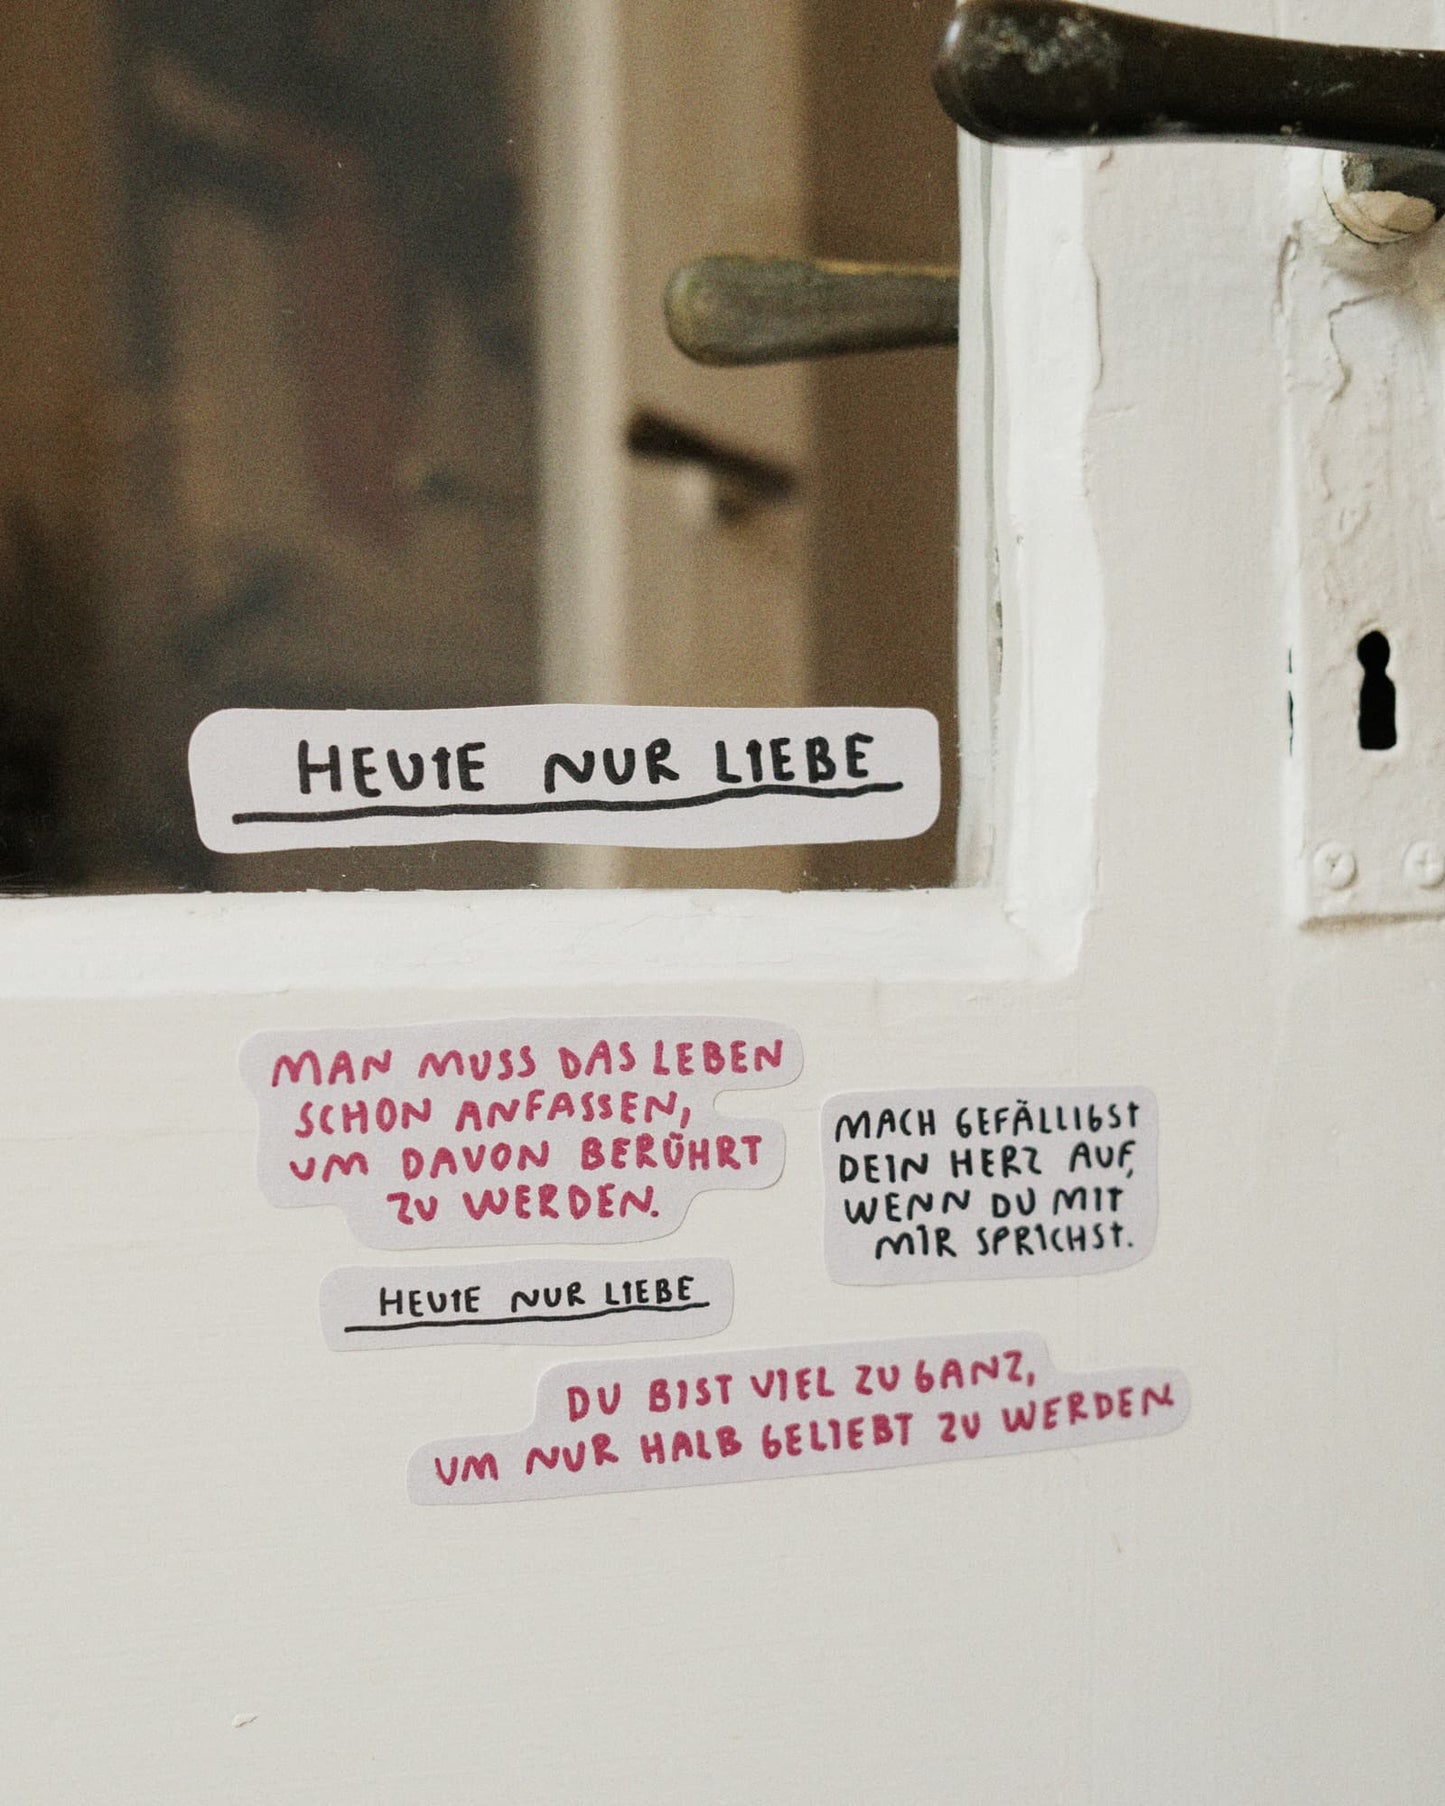 HEUTE NUR LIEBE
MAN MUSS DAS LEBEN
SCHON ANFASSEN,
UM DAVON BERÜHRT
ZU WERDEN.
MACH GEFÄLLIGST
DEIN HERZ AUF,
WENN DU MIT
MIR SPRICHST.
HEUTE NUR LIEBE
DU BIST VIEL ZU GANZ,
UM NUR HALB GELIEBT ZU WERDEN